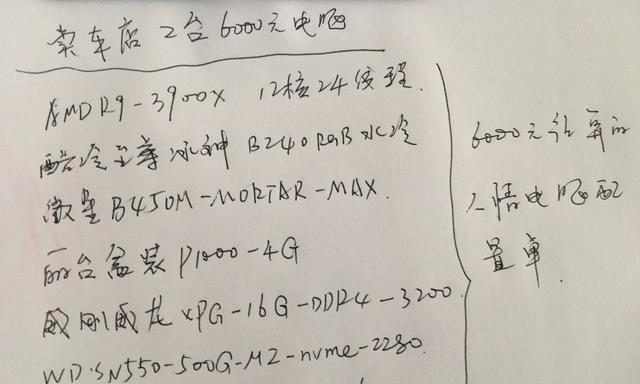 卖车店 2台6000元电脑
AMDR9-3900X 12核24线程.
酷冷至尊冰神 B240 RGB水冷
微星B450M-MORTAR-MAX.
丽台盒装P1000-4G
威刚威龙XPG-16G-DDR4-3200
WD:SN550-500G-M2-nvme-2280.
6000元
电脑配
置单.